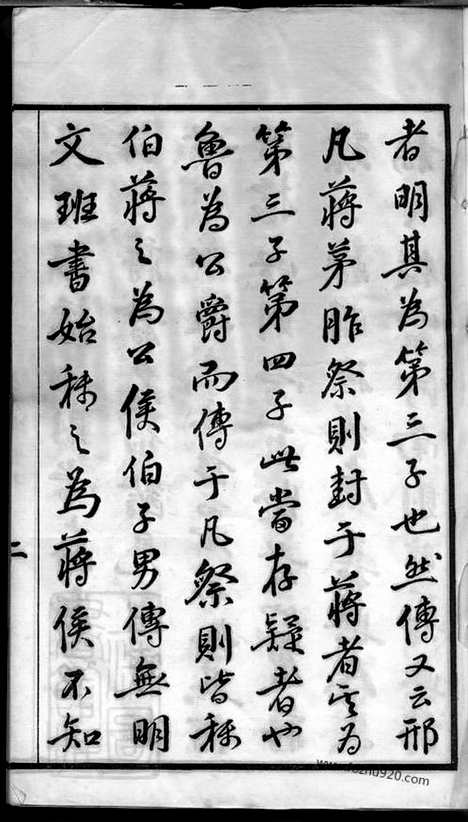 者明其為第三子也然傳又云邢
凡蔣茅胙祭則封于蔣者其為
第三子第四子此當存疑者也
魯為公爵而傳于凡祭則皆稱
伯蔣之為公侯伯子男傳無明
文班書始稱之為蔣侯不知
二